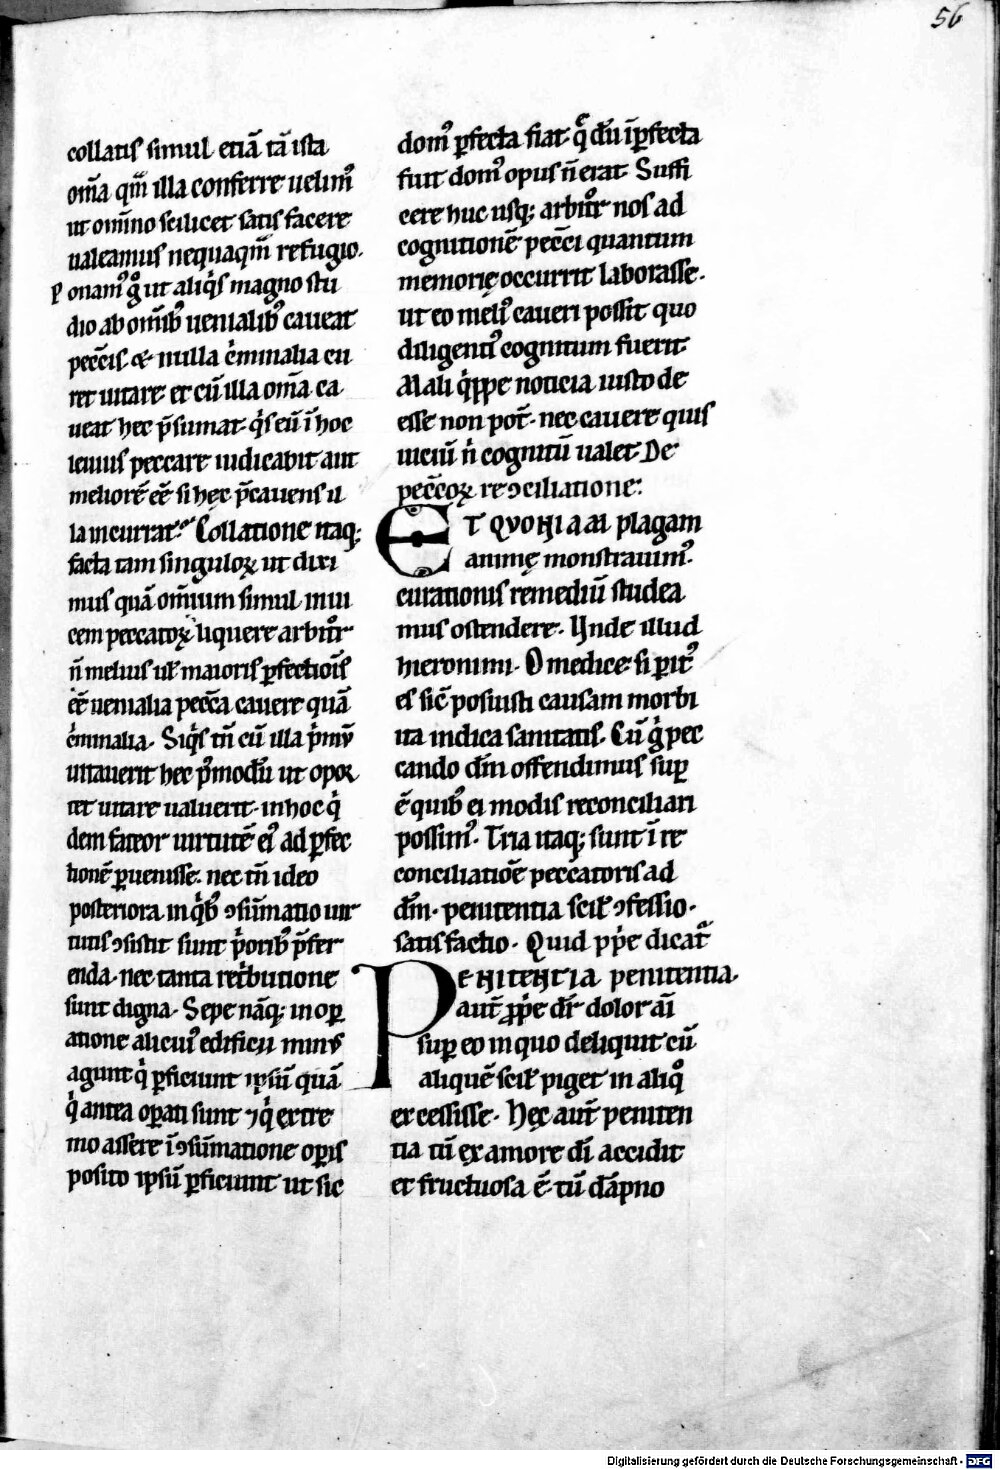 56
collatis simul etiā tā ista
om̄a qm̄ illa conferre uelim᷒
ut om̄ino scilicet satis facere
ualeamus nequaqm̄ refugio.
Ponam᷒ gͦ ut aliqͥs magno stu
dio ab om̄ibꝫ uenialibꝫ caueat
pecc̄is & nulla cͥminalia cu
ret uitare et cū illa om̄a ca
ueat hec p̄sumat. qͥs eū ī hoc
leuius peccare iudicabit aut
meliorē eē si hęc p̄cauens il
la incurrat. Collatione itaqꝫ
facta tam singuloꝝ ut dixi
mus quā om̄ium simul inui
cem peccatoꝝ liquere arbitͦr
n̄ melius ul̄ maioris ꝑfectiōis
eē uenialia pecc̄a cauere quā
cͥminalia. Siqͥs tn̄ cū illa pͥmū
uitauerit hec p̄modū ut opor
tet uitare ualuerit. in hoc qͥ
dem fateor uirtutē ei᷒ ad ꝑfec
tionē ꝑuenisse. nec tn̄ ideo
posteriora in qͥbꝫ ɔsūmatio uir
tutis ɔsistit sunt pͥoribꝫ p̄fer
enda. nec tanta ret̄butione
sunt digna. Sepe nāqꝫ in oꝑ
atione alicui᷒ edificii min᷒
agunt qͥ ꝑficiunt ipsū quā
qͥ antea oꝑati sunt ⁊ qͥ extre
mo assere ī ɔsūmatione oꝑis
posito ipsū ꝑficiunt ut sic
dom᷒ ꝑfecta fiat. qͣ dū īꝑfecta
fuit dom᷒ opus n̄ erat. Suffi
cere huc usqꝫ arbitͦr nos ad
cognitionē pecc̄i quantum
memorię occurrit laborasse.
ut eo meli᷒ caueri possit quo
diligenti᷒ cognitum fuerit.
Mali qͥppe noticia iusto de
esse non pot̄. nec cauere quis
uiciū n̄ cognitū ualet. De
pecc̄oꝝ reɔciliatione:
ET QVONIAM plagam
animę monstrauim᷒.
curationis remediū studea
mus ostendere. Unde illud
hieronimi. O medice si ꝑit᷒
es sic̄ posuisti causam morbi
ita indica sanitatis. Cū gͦ pec
cando dm̄ offendimus suꝑ
ē quibꝫ ei modis reconciliari
possim᷒. Tria itaqꝫ sunt ī re
conciliatiōe peccatoris ad
dm̄. penitentia scil̄. ɔfessio.
satisfactio. Quid ꝓpͥe dicat̄
PENITENTIA penitentia.
aut̄ ꝓpͥe dr̄ dolor aī
suꝑ eo in quo deliquit cū
aliquē scil̄ piget in aliqͦ
excessisse. Hęc aut̄ peniten
tia tū ex amore dī accidit
et fructuosa ē tū dāpno
Digitalisierung gefördert durch die Deutsche Forschungsgemeinschaft - DFG